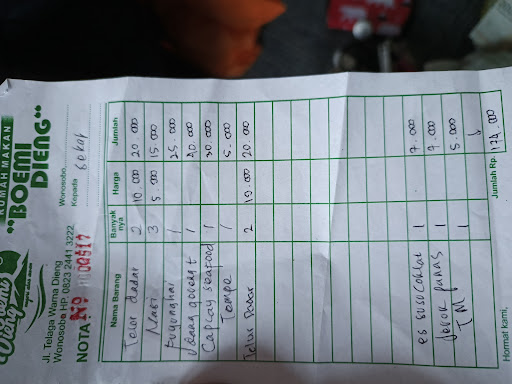 RUMAH MAKAN
"BOEMI
DIENG"
Jl. Telaga Warna Dieng
Wonosobo HP. 0823 2441 3222
NOTA No 00517
Wonosobo,
Kepada
Nama Barang Banyak nya Harga Jumlah
Telur Dadar 2 10.000 20 000
Nasi 3 5.000 15.000
Fuyunghai 1 25 000
1
Capcay seafood 1 30.000
Tempe 1 5.000
Telur Dadar 2 10.000 20.000
es susu Coklat 1 7.000
Jeruk panas 1
TM 1 5.000
Jumlah Rp. 174.000
Hormat kami,